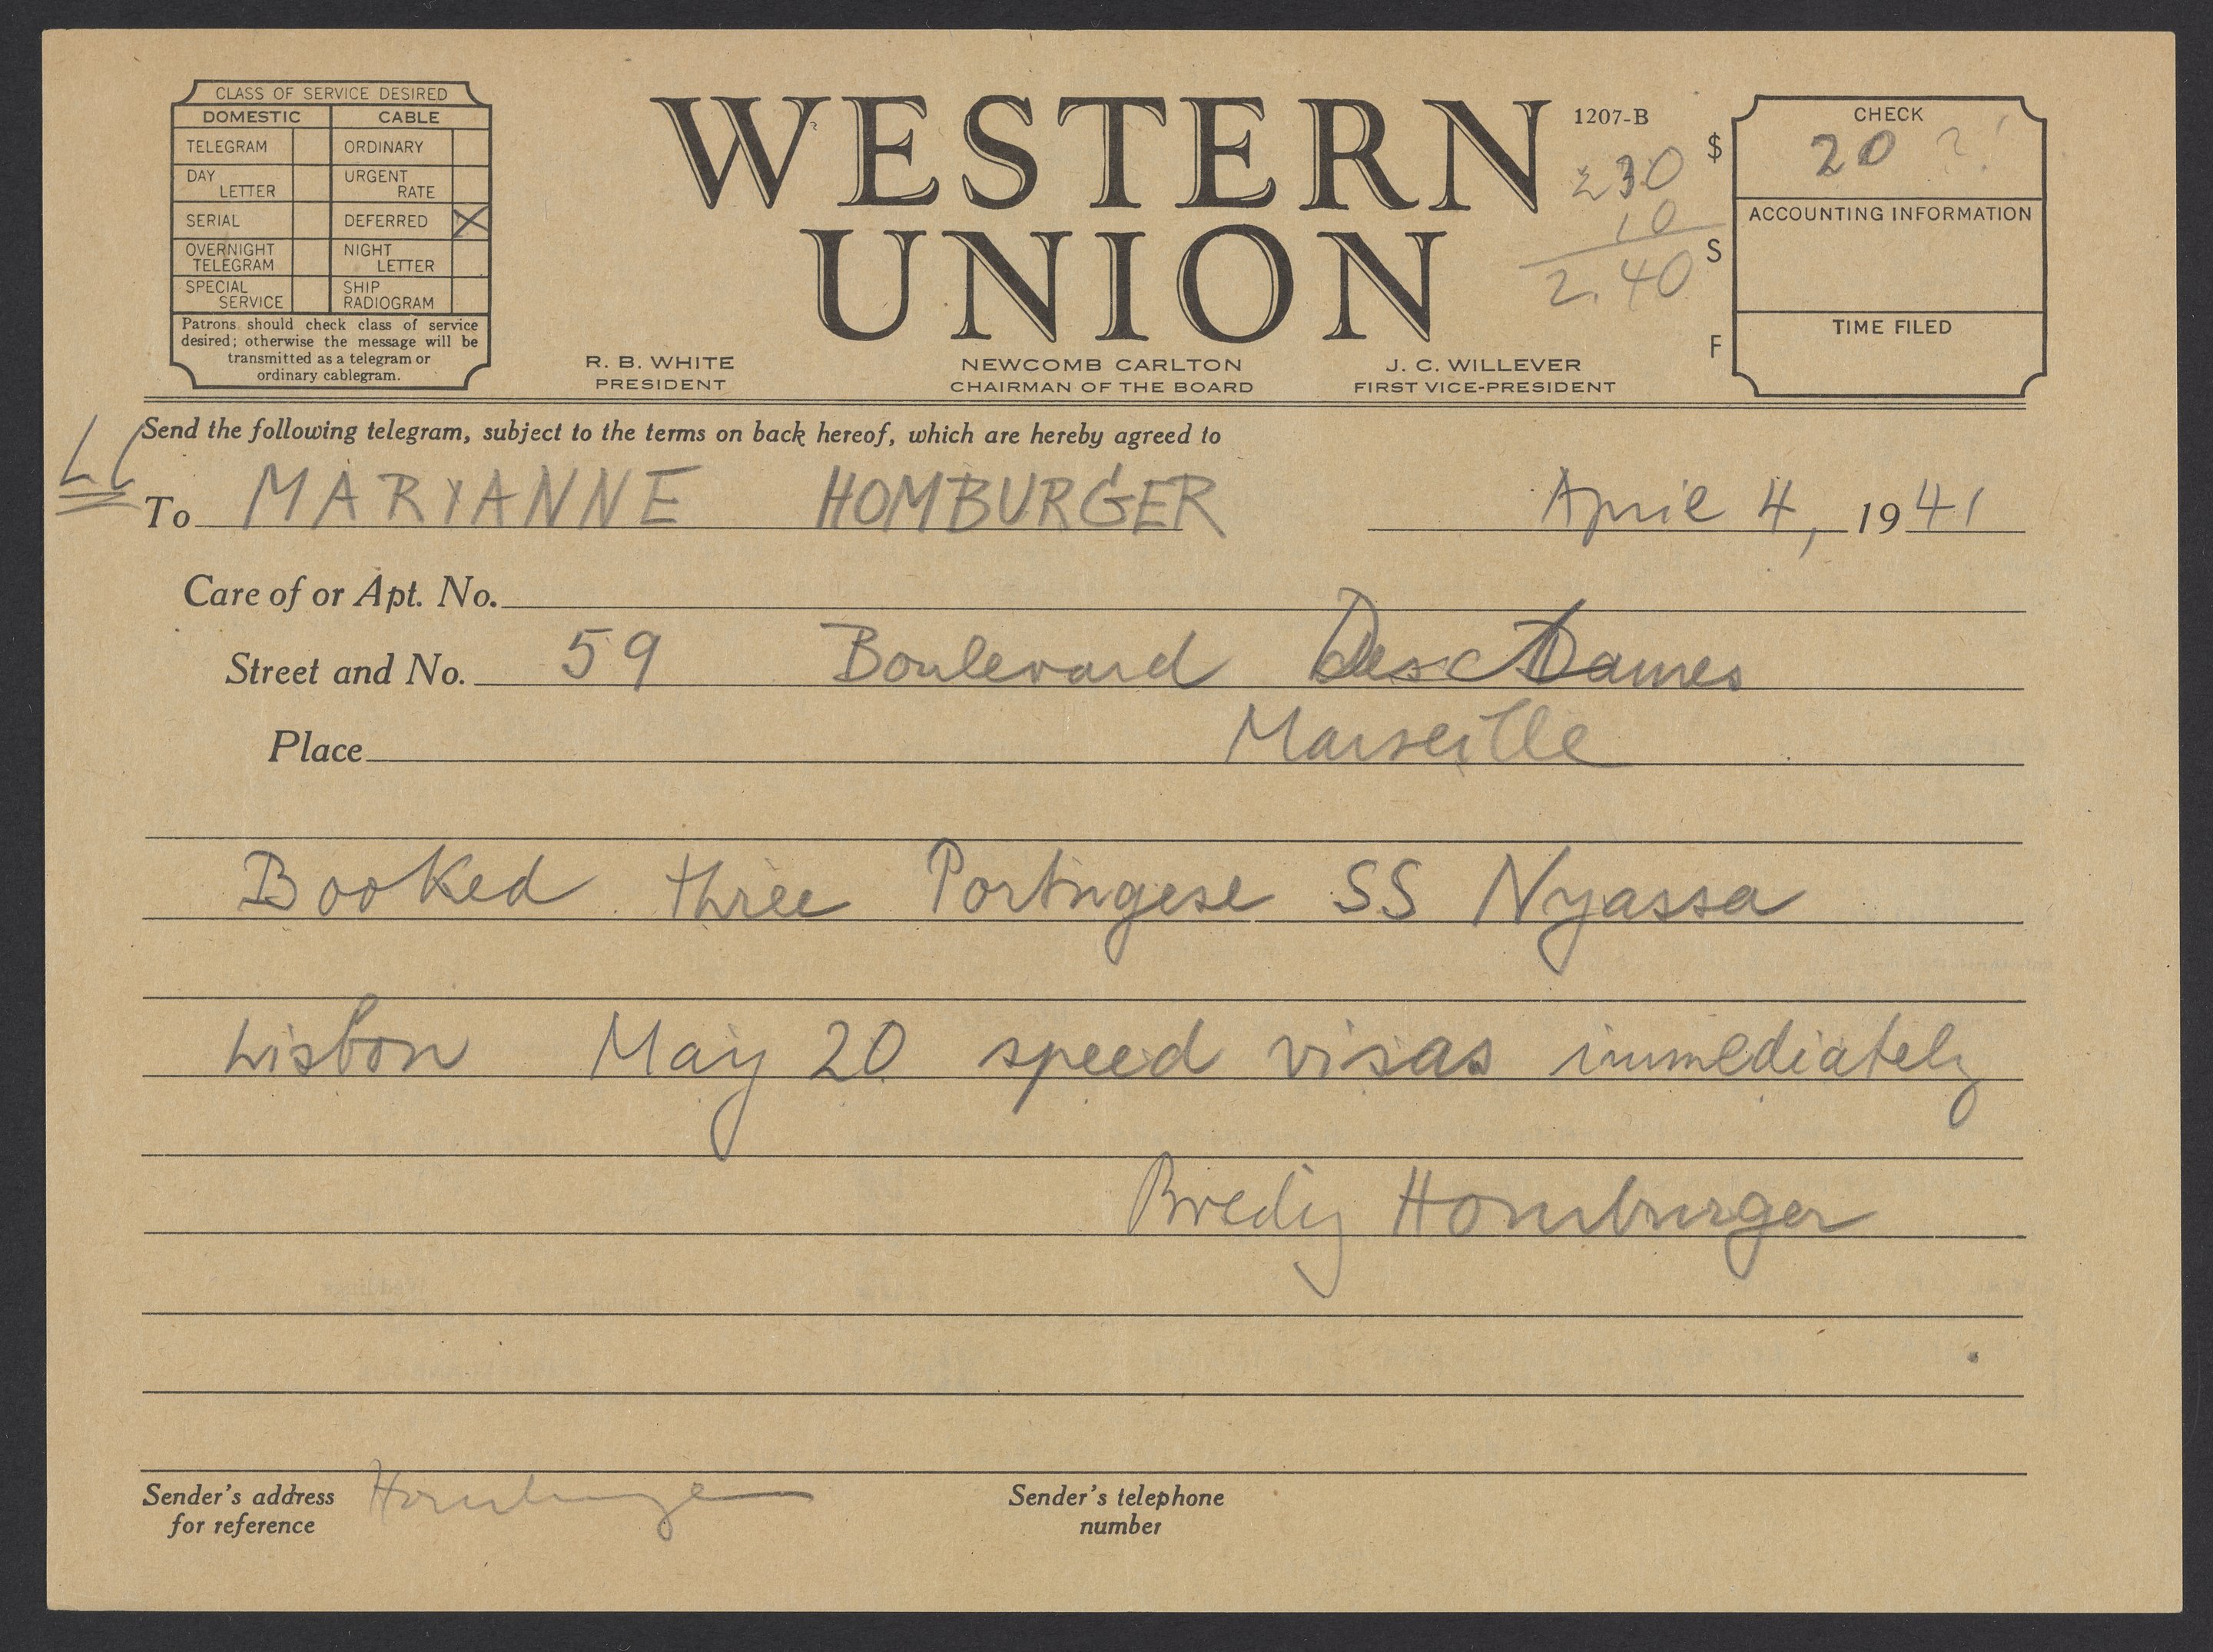 CLASS OF SERVICE DESIRED
DOMESTIC CABLE
TELEGRAM ORDINARY
DAY LETTER URGENT RATE
SERIAL DEFERRED X
OVERNIGHT TELEGRAM NIGHT LETTER
SPECIAL SERVICE SHIP RADIOGRAM
Patrons should check class of service
desired; otherwise the message will be
transmitted as a telegram or
ordinary cablegram.
WESTERN
UNION
1207-B
230
10
2.40
$
S
F
CHECK
20 ?
ACCOUNTING INFORMATION
TIME FILED
R. B. WHITE
PRESIDENT
NEWCOMB CARLTON
CHAIRMAN OF THE BOARD
J. C. WILLEVER
FIRST VICE-PRESIDENT
Send the following telegram, subject to the terms on back hereof, which are hereby agreed to
LC
To MARIANNE HOMBURGER April 4, 1941
Care of or Apt. No.
Street and No. 59 Boulevard Des Dames
Place Marseille
Booked three Portugese SS Nyassa
Lisbon May 20 speed visas immediately
Bredig Homburger
Sender's address
for reference
Homburger
Sender's telephone
number